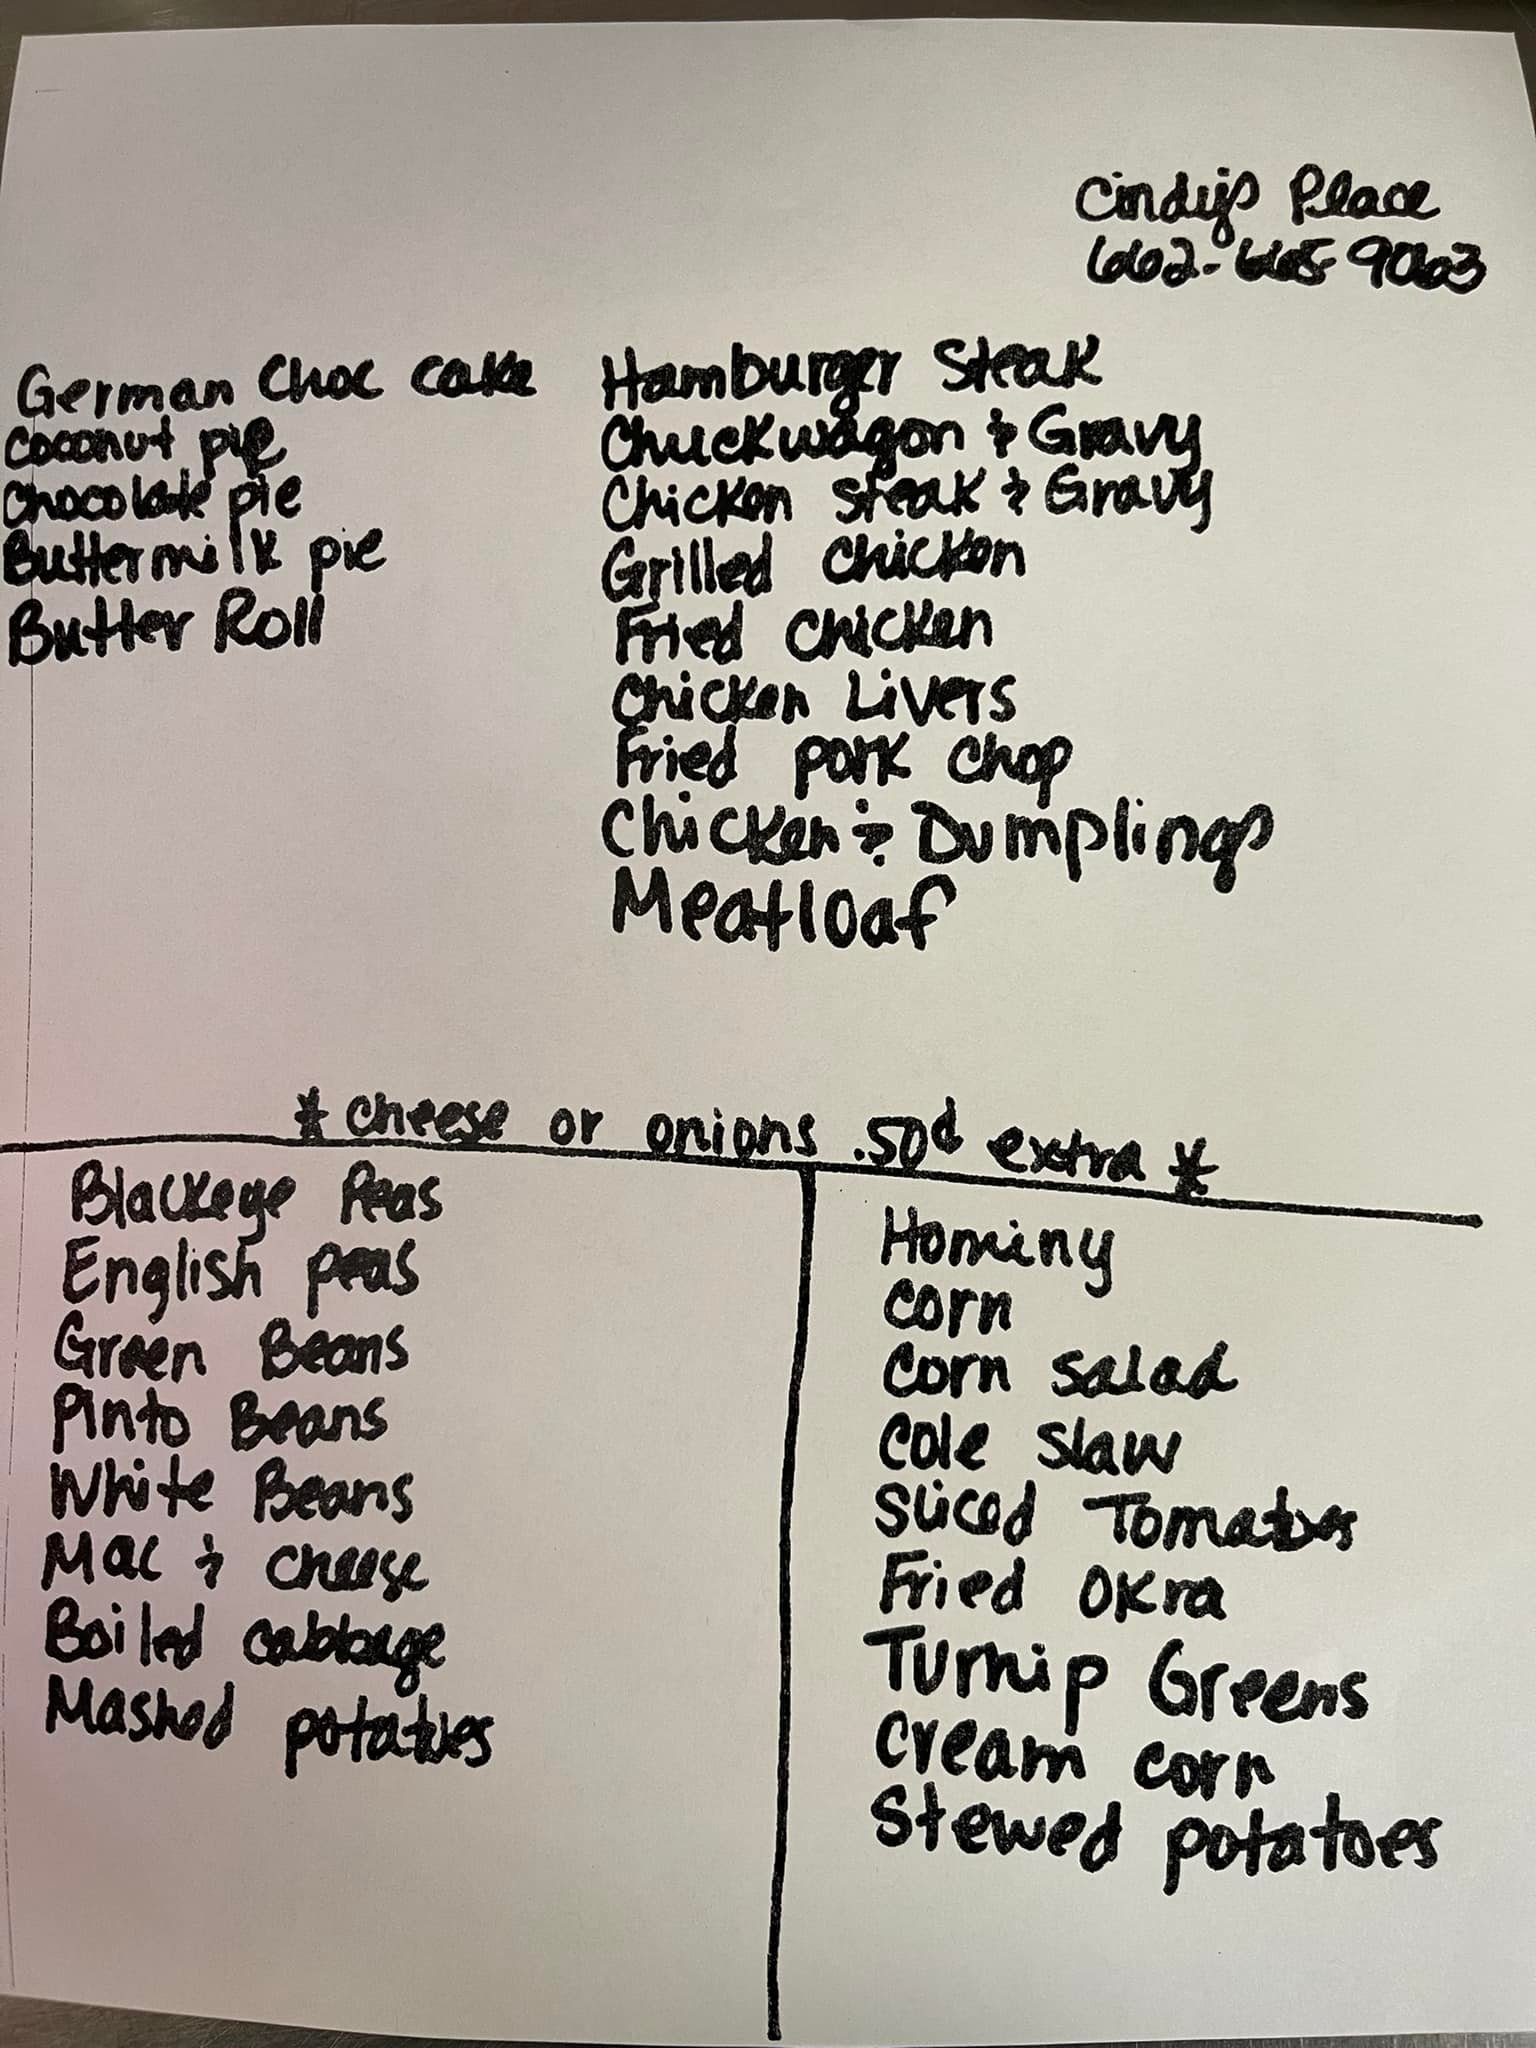 Cindy's Place
662-665-9063
German Choc Cake
Coconut pie
Chocolate pie
Buttermilk pie
Butter Roll
Hamburger Steak
Chuckwagon & Gravy
Chicken Steak & Gravy
Grilled Chicken
Fried Chicken
Chicken Livers
Fried pork chop
Chicken & Dumplings
Meatloaf
* cheese or onions .50¢ extra *
Blackeye Peas
English peas
Green Beans
Pinto Beans
White Beans
Mac & Cheese
Boiled cabbage
Mashed potatoes
Hominy
Corn
Corn Salad
Cole Slaw
Sliced Tomatoes
Fried Okra
Turnip Greens
Cream corn
Stewed potatoes